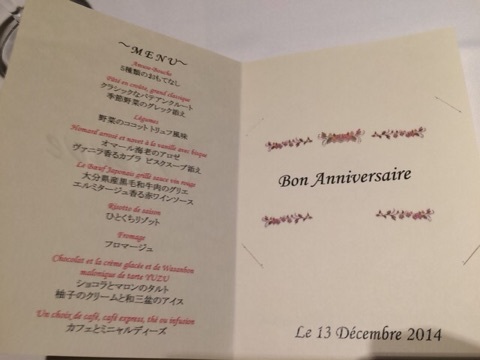 ～MENU～
Amuse-Bouche
5種類のおもてなし
Pâté en croûte, grand classique
クラシックなパテアンクルート
季節野菜のグレック添え
Légumes
野菜のココット トリュフ風味
Homard arrosé et navet à la vanille avec bisque
オマール海老のアロゼ
ヴァニラ香るカブラ ビスクスープ添え
Le Bœuf Japonais grillé sauce vin rouge
大分県産黒毛和牛肉のグリエ
エルミタージュ香る赤ワインソース
Risotto de saison
ひとくちリゾット
Fromage
フロマージュ
Chocolat et la crème glacée et de Wasanbon
malonique de tarte YUZU
ショコラとマロンのタルト
柚子のクリームと和三盆のアイス
Un choix de café, café express, thé ou infusion
カフェとミニャルディーズ
Bon Anniversaire
Le 13 Décembre 2014